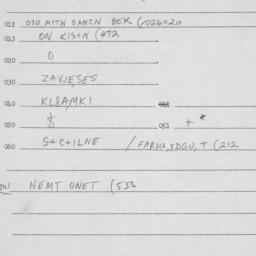 012 010 MITN OANCN BEK (026020
013 ON KISTN (472
020 0
030 ZAVJE,SES
040 KL8A,MKI
050 $ 051 + *
060 S+C+1LNE / FARHA,XDGU, T (212
NEMT ONET (533